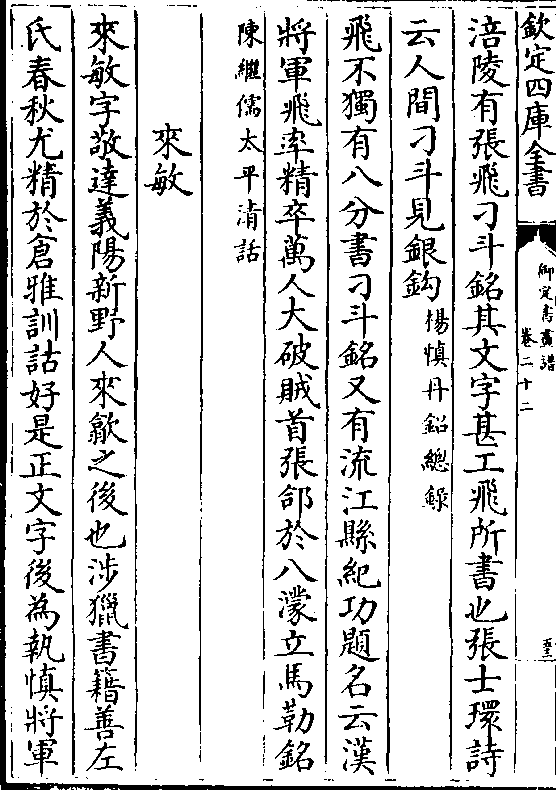 欽定四庫全書
御定書畫譜
卷二十二
涪陵有張飛刁斗銘其文字甚工飛所書也張士環詩
云人間刁斗見銀鈎楊慎丹鉛總錄
飛不獨有八分書刁斗銘又有流江縣紀功題名云漢
將軍飛率精卒萬人大破賊首張郃於八濛立馬勒銘
陳繼儒太平清話
來敏
來敏字敬達義陽新野人來歙之後也涉獵書籍善左
氏春秋尤精於倉雅訓詁好是正文字後為執慎將軍